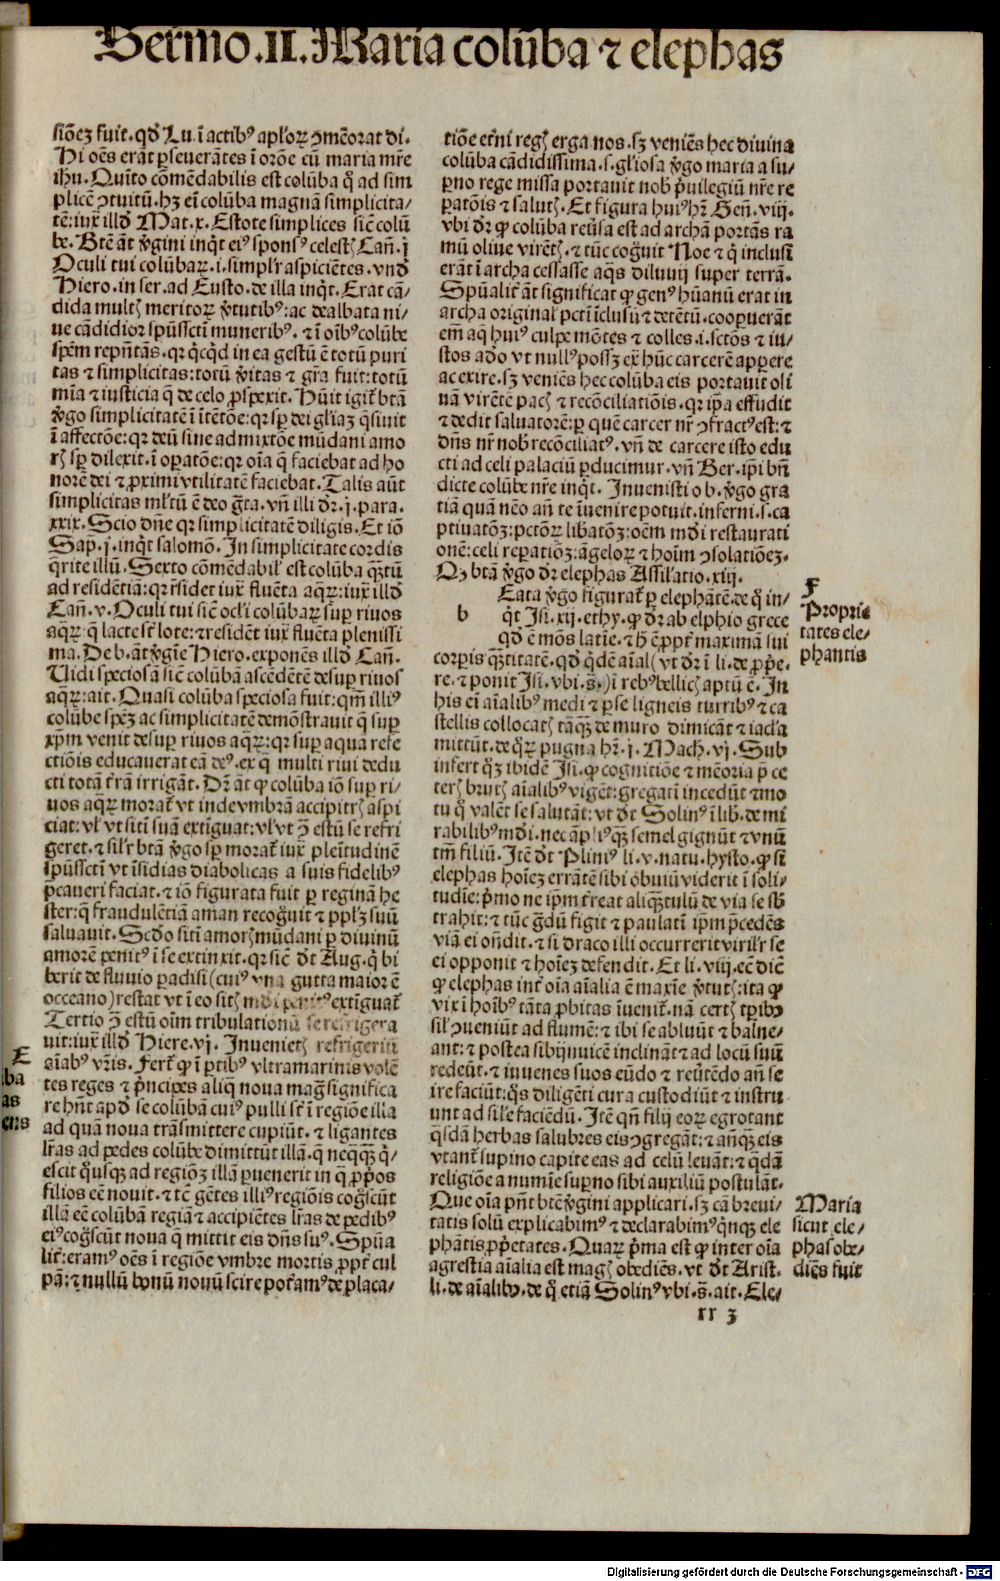 Sermo.II.Maria colūba ⁊ elephas
siōeꝫ fuit. qđ Lu. ī actibꝰ apl'oꝝ ꝯmēorat di.
Hi oēs erāt ꝑseuerātes ī orōe cū maria mr̄e
ihu. Quīto cōmēdabilis est colūba q̄ ad sim
plicē ꝯtuitū. hꝫ eī colūba magnā simplicita⸗
tē: iux̄ illđ Mat. x. Estote simplices sic̄ colū
be. Btē āt v̄gini inq̄t eiꝰ sponsꝰ celest Cañ. j
Oculi tui colūbaꝝ. i. simpl'r aspiciētes. vnđ
Hiero. in ser. ad Eusto. de illa inq̄t. Erat cā⸗
dida mult meritoꝝ v̄tutibꝰ: ac dealbata ni⸗
ue cādidior spūssctī muneribꝰ. ⁊ ī oībꝰ colūbe
spēm rep̄ntās. qꝛ q̄cq̄d in ea gestū ē totū puri
tas ⁊ simplicitas: totū v̄itas ⁊ gr̄a fuit: totū
mīa ⁊ iusticia q̄ de celo ꝓspexit. Hūit igit̄ btā
v̄go simplicitatē ī ītētōe: qꝛ sꝑ dei gl'iaꝫ q̄siuit
ī affectōe: qꝛ deū sine admixtōe mūdani amo
ris sꝑ dilexit. ī oꝑatōe: qꝛ oīa q̄ faciebat ad ho
norē dei ⁊ ꝓximi vtilitatē faciebat. Talis aūt
simplicitas ml'tū ē deo gr̄ta. vñ illi dr̄. j. para.
xxix. Scio dñe qꝛ simplicitatē diligis. Et iō
Sap̄. j. inq̄t salomō. In simplicitate cordis
q̄rite illū. Sexto cōmēdabil' est colūba q̄ꝫtū
ad residētiā: qꝛ r̄sidet iux̄ fluēta aq̄ꝝ: iux̄ illđ
Cañ. v. Oculi tui sic̄ ocl'i colūbaꝝ suꝑ riuos
aq̄ꝝ: q̄ lacte st̄ lote: ⁊ residēt iux̄ fluēta plenissi
ma. De b. āt v̄gīe Hiero. exponēs illđ Cañ.
Uidi speciosā sic̄ colūbā ascēdētē desuꝑ riuos
aq̄ꝝ: ait. Quasi colūba speciosa fuit: qm̄ illiꝰ
colūbe spēꝫ ac simplicitatē demōstrauit q̄ suꝑ
xp̄m venit desuꝑ riuos aq̄ꝝ: qꝛ suꝑ aqua refe
ctiōis educauerat eā deꝰ. ex q̄ multi riui dedu
cti totā t̄rā irrigāt. Dr̄ āt ꝙ colūba iō suꝑ ri⸗
uos aq̄ꝝ morat̄ vt inde vmbrā accipitris aspi
ciat: vl' vt sitī suā extīguat: vl' vt ꝯ̄ estū se refri
geret. ⁊ sil'r btā v̄go sꝑ morat̄ iux̄ plenitudinē
spūssctī vt īsidias diabolicas a suis fidelibꝰ
p̄caueri faciat. ⁊ iō figurata fuit ꝑ reginā he
ster: q̄ fraudulētiā aman recog̃uit ⁊ ppl'ꝫ suū
saluauit. Scđo sitī amoris mūdani ꝑ diuinū
amorē penitꝰ ī se extinxit. qꝛ sic̄ dt̄ Aug. q̄ bi
berit de fluuio paradisi (cuiꝰ vna gutta maior ē
occeano) restat vt ī eo sitis mđi penitꝰ extīguat̄
Tertio ꝯ̄ estū oīm tribulationū se refrigera
uit: iux̄ illđ Hiere. vj. Inuenietis refrigeriū
aīabꝰ vr̄is. Fert̄ ꝙ ī ꝑtibꝰ vltramarinis volē
tes reges ⁊ prīcipes aliq̄ noua mag̃ significa
re hn̄t apđ se colūbā cuiꝰ pulli st̄ ī regiōe illa
ad quā noua trāsmittere cupiūt. ⁊ ligantes
lr̄as ad pedes colūbe dimittūt illā. q̄ neq̄q̄ꝫ q̄⸗
escit q̄usqꝫ ad regiōꝫ illā ꝑuenerit in q̄ ꝓp̄os
filios eē nouit. ⁊ tc̄ gētes illiꝰ regiōis cog̃scūt
illā eē colūbā regiā ⁊ accipiētes lr̄as de pedibꝰ
eiꝰ cog̃scūt noua q̄ mittit eis dñs suꝰ. Spūa
lit̄: eramꝰ oēs ī regiōe vmbre mortis ꝓpt̄ cul
pā: ⁊ nullū bonū nouū scire poteramꝰ de placa⸗
tiōe et̄ni regis erga nos. sꝫ veniēs hec diuina
colūba cādidissima. s. gl'iosa v̄go maria a su⸗
ꝑno rege missa portauit nob̄ p̄uilegiū nr̄e re
ꝑatōis ⁊ salutis. Et figura huiꝰ hr̄ Geñ. viij.
vbi dr̄ ꝙ colūba reūsa est ad archā portās ra
mū oliue virētis. ⁊ tūc cog̃uit Noe ⁊ q̄ inclusi
erāt ī archa cessasse aq̄s diluuij super terrā.
Spūalit̄ āt significat ꝙ genꝰ hūanū erat in
archa original' pctī īclusū ⁊ detētū. cooꝑuerāt
em̄ aq̄ huiꝰ culpe mōtes ⁊ colles. i. sctōs ⁊ iu⸗
stos ađo vt nullꝰ possꝫ ex̄ hūc carcerē apꝑere
ac exire. sꝫ veniēs hec colūba eis portauit oli
uā virētē pacis ⁊ recōciliatiōis. qꝛ ip̄a effudit
⁊ dedit saluatorē: ꝑ quē carcer nr̄ ꝯfractꝰ est: ⁊
dñs nr̄ nob̄ recōciliatꝰ. vñ de carcere isto edu
cti ad celi palaciū ꝑducimur. vñ Ber. ip̄i bñ
dicte colūbe nr̄e inq̄t. Inuenisti o b. v̄go gra
tiā quā nēo añ te īuenire potuit. inferni. s. ca
ptiuatōꝫ: pctōꝝ libatōꝫ: oēm mđi restaurati
onē: celi reꝑatiōꝫ: āgeloꝝ ⁊ hoīm ꝯsolatiōeꝫ.
Qꝫ btā v̄go dr̄ elephas Assil'atio. xiij.
b Eata v̄go figurat̄ ꝑ elephātē. de q̄ in⸗
q̄t Isi. xij. ethy. ꝙ dr̄ ab elphio grece
qđ ē mōs latīe. ⁊ h̄ ē ꝓpt̄ maximā sui
corꝑis q̄ꝫtitatē. qđ q̄dē aīal (vt dr̄ ī li. de ꝓp̄e.
re. ⁊ ponit Isi. vbi. s̄.) ī rebꝰ bellicis aptū ē. In
his eī aīalibꝰ medi ⁊ perse ligneis turribꝰ ⁊ ca
stellis collocatis tāq̄ꝫ de muro dimicāt ⁊ iacl'a
mittūt. de q̄ꝝ pugna hr̄. j. Mach. vj. Sub
infert q̄ꝫ ibidē Isi. ꝙ cognitiōe ⁊ mēoria p̄ ce
teris brutis aīalibꝰ vigēt: gregatī incedūt ⁊ mo
tu q̄ valēt se salutāt: vt dt̄ Solinꝰ ī lib. de mi
rabilibꝰ mđi. nec āplīꝰ q̄ꝫ semel gignūt ⁊ vnū
tm̄ filiū. Itē dt̄ Pliniꝰ li. v. natu. hysto. ꝙ si
elephas hoīeꝫ errātē sibi obuiū viderit ī soli⸗
tudīe: p̄mo ne ip̄m t̄reat aliq̄ꝫtulū de via se sb̄
trahit: ⁊ tūc g̃dū figit ⁊ paulatī ip̄m p̄cedēs
viā ei oñdit. ⁊ si draco illi occurrerit viril'r se
ei opponit ⁊ hoīeꝫ defendit. Et li. viij. eē dic̄
ꝙ elephas int̄ oīa aīalia ē maxīe v̄tutis: ita ꝙ
vix ī hoībꝰ tāta ꝓbitas īuenit̄. nā certis tꝑibꝫ
sil' ꝯueniūt ad flumē: ⁊ ibi se abluūt ⁊ balne⸗
ant: ⁊ postea sibijnuicē inclināt ⁊ ad locū suū
redeūt. ⁊ iuuenes suos eūdo ⁊ reūtēdo añ se
ire faciūt: q̄s diligēti cura custodiūt ⁊ instru
unt ad sil'e faciēdū. Itē qñ filij eoꝝ egrotant
q̄sdā herbas salubres eis ꝯgregāt: ⁊ añq̄ꝫ eis
vtant̄ supino capite eas ad celū leuāt: ⁊ q̄dā
religiōe a numīe suꝑno sibi auxiliū postulāt.
Que oīa pn̄t btē v̄gini applicari. sꝫ cā breui⸗
tatis solū explicabimꝰ ⁊ declarabimꝰ q̄nqꝫ ele
phātis ꝓp̄etates. Quaꝝ p̄ma est ꝙ inter oīa
agrestia aīalia est magis obediēs. vt dt̄ Arist.
li. de aīalibꝫ. de q̄ etiā Solinꝰ vbi. s̄. ait. Ele⸗
rr 3
F
Proprie
tates ele⸗
phantis
Maria
sicut ele⸗
phas obe⸗
diēs fuit
E
ba
as
ens
Digitalisierung gefördert durch die Deutsche Forschungsgemeinschaft - DFG